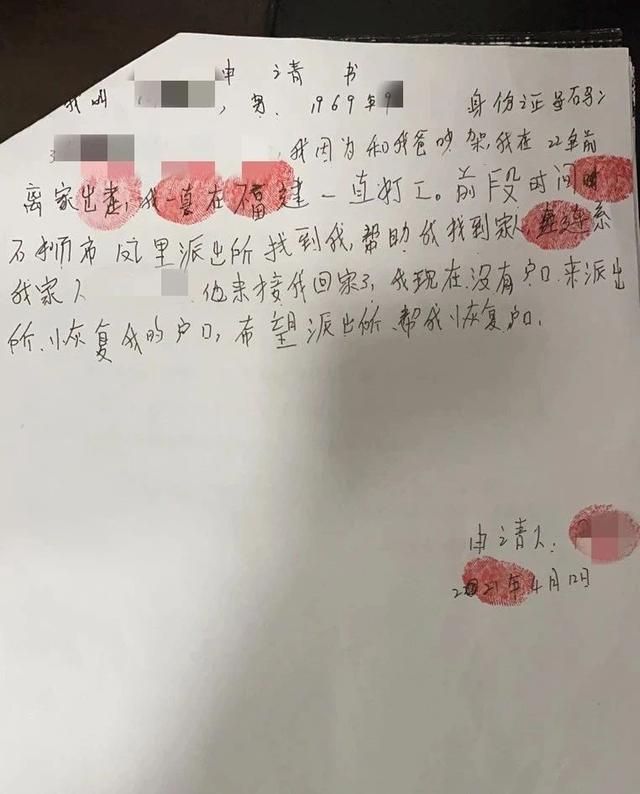 申请书
我叫，男，1969年9 身份证号码：
3，我因为和我爸吵架，我在22年前
离家出走，我一直在福建一直打工。前段时间
石狮市 派出所找到我，帮助我找到家人，并连系
我家人 他来接我回家了，我现在没有户口来派出
所、恢复我的户口，希望派出所帮我恢复户口。
申请人：
2021年4月12日